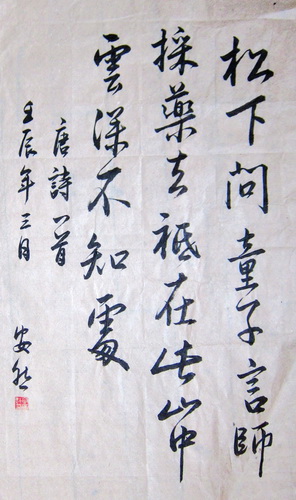 松下問童子言師
採藥去祗在此山中
雲深不知處
唐詩一首
壬辰年三月 安然